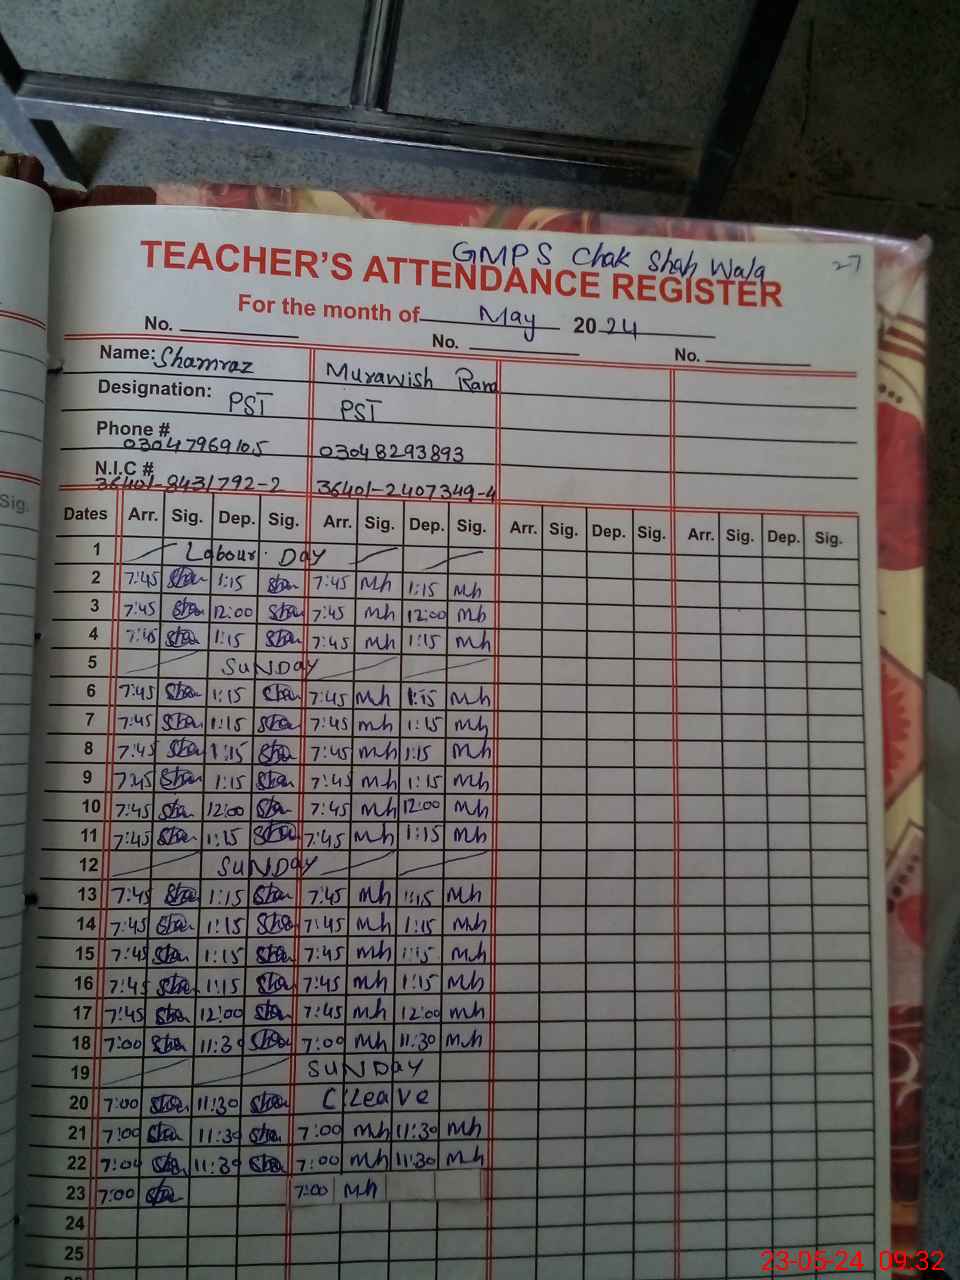 GMPS Chak Shah Wala 27
TEACHER'S ATTENDANCE REGISTER
For the month of May 2024
No. No. No.
Name: Shamraz Murawish Rana
Designation: PST PST
Phone # 03047969105 03048293893
N.I.C # 36401-8431792-2 36401-2407349-4
Sig.
Dates Arr. Sig. Dep. Sig. Arr. Sig. Dep. Sig. Arr. Sig. Dep. Sig. Arr. Sig. Dep. Sig.
1 Labour Day
2 7:45 Sha 1:15 Sha 7:45 Mh 1:15 Mh
3 7:45 Sha 12:00 Sha 7:45 Mh 12:00 Mh
4 7:45 Sha 1:15 Sha 7:45 Mh 1:15 Mh
5 SUNDAY
6 7:45 Sha 1:15 Sha 7:45 Mh 1:15 Mh
7 7:45 Sha 1:15 Sha 7:45 Mh 1:15 Mh
8 7:45 Sha 1:15 Sha 7:45 Mh 1:15 Mh
9 7:45 Sha 1:15 Sha 7:45 Mh 1:15 Mh
10 7:45 Sha 12:00 Sha 7:45 Mh 12:00 Mh
11 7:45 Sha 1:15 Sha 7:45 Mh 1:15 Mh
12 SUNDAY
13 7:45 Sha 1:15 Sha 7:45 Mh 1:15 Mh
14 7:45 Sha 1:15 Sha 7:45 Mh 1:15 Mh
15 7:45 Sha 1:15 Sha 7:45 Mh 1:15 Mh
16 7:45 Sha 1:15 Sha 7:45 Mh 1:15 Mh
17 7:45 Sha 12:00 Sha 7:45 Mh 12:00 Mh
18 7:00 Sha 11:30 Sha 7:00 Mh 11:30 Mh
19 SUNDAY
20 7:00 Sha 11:30 Sha C'Leave
21 7:00 Sha 11:30 Sha 7:00 Mh 11:30 Mh
22 7:00 Sha 11:30 Sha 7:00 Mh 11:30 Mh
23 7:00 Sha 7:00 Mh
24
25
23-05-24 09:32